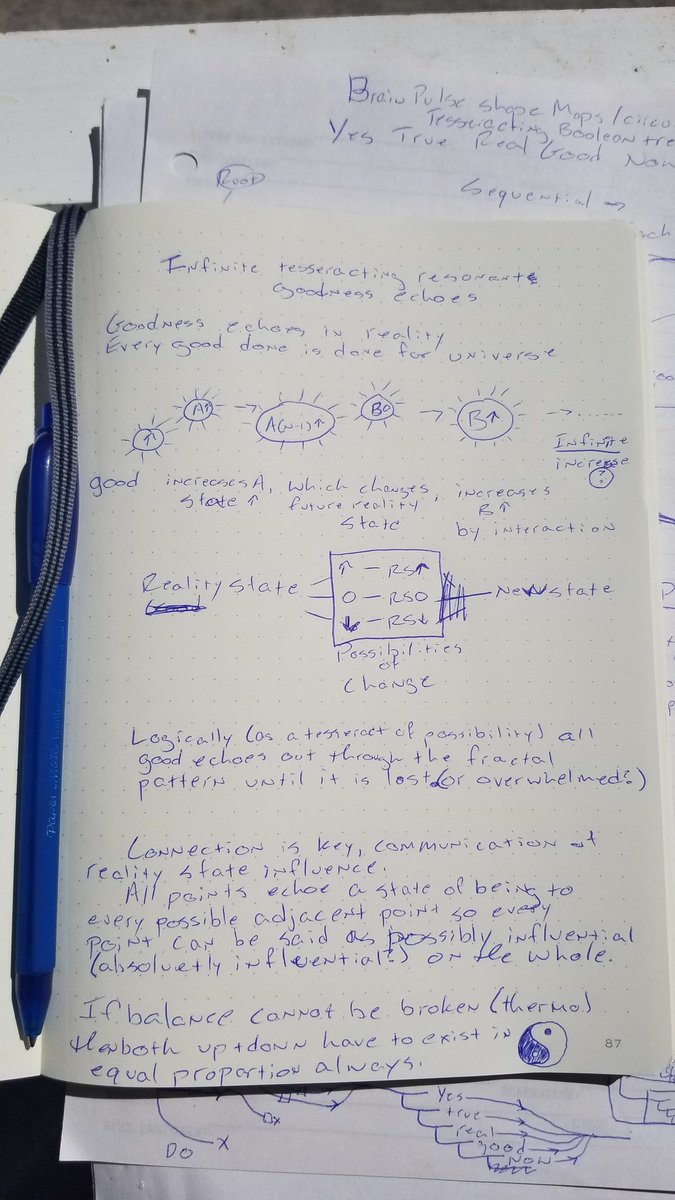 Brain Pulse shape Maps/circu
Tesseracting Boolean tre
Yes True Real Good Now
Root
Sequential →
ach
Infinite tesseracting resonant
goodness echoes
Goodness echoes in reality
Every good done is done for universe
↑ A↑ → A(N-1)↑ B0 → B↑ → ......
Infinite
increase
?
good increases A, which changes, increases
state ↑ future reality B↑
state by interaction
Reality State
↑ — RS↑
O — RSO
↓ — RS↓
New state
Possibilities
of
change
Logically (as a tesseract of possibility) all
good echoes out through the fractal
pattern until it is lost (or overwhelmed?)
Connection is key, communication of
reality state influence.
All points echoe a state of being to
every possible adjacent point so every
point can be said as possibly influential
(absoluetly influential?) on the whole.
If balance cannot be broken (thermo)
then both up + down have to exist in
equal proportion always.
87
Do x
Dx
Yes
true
real
good
Now